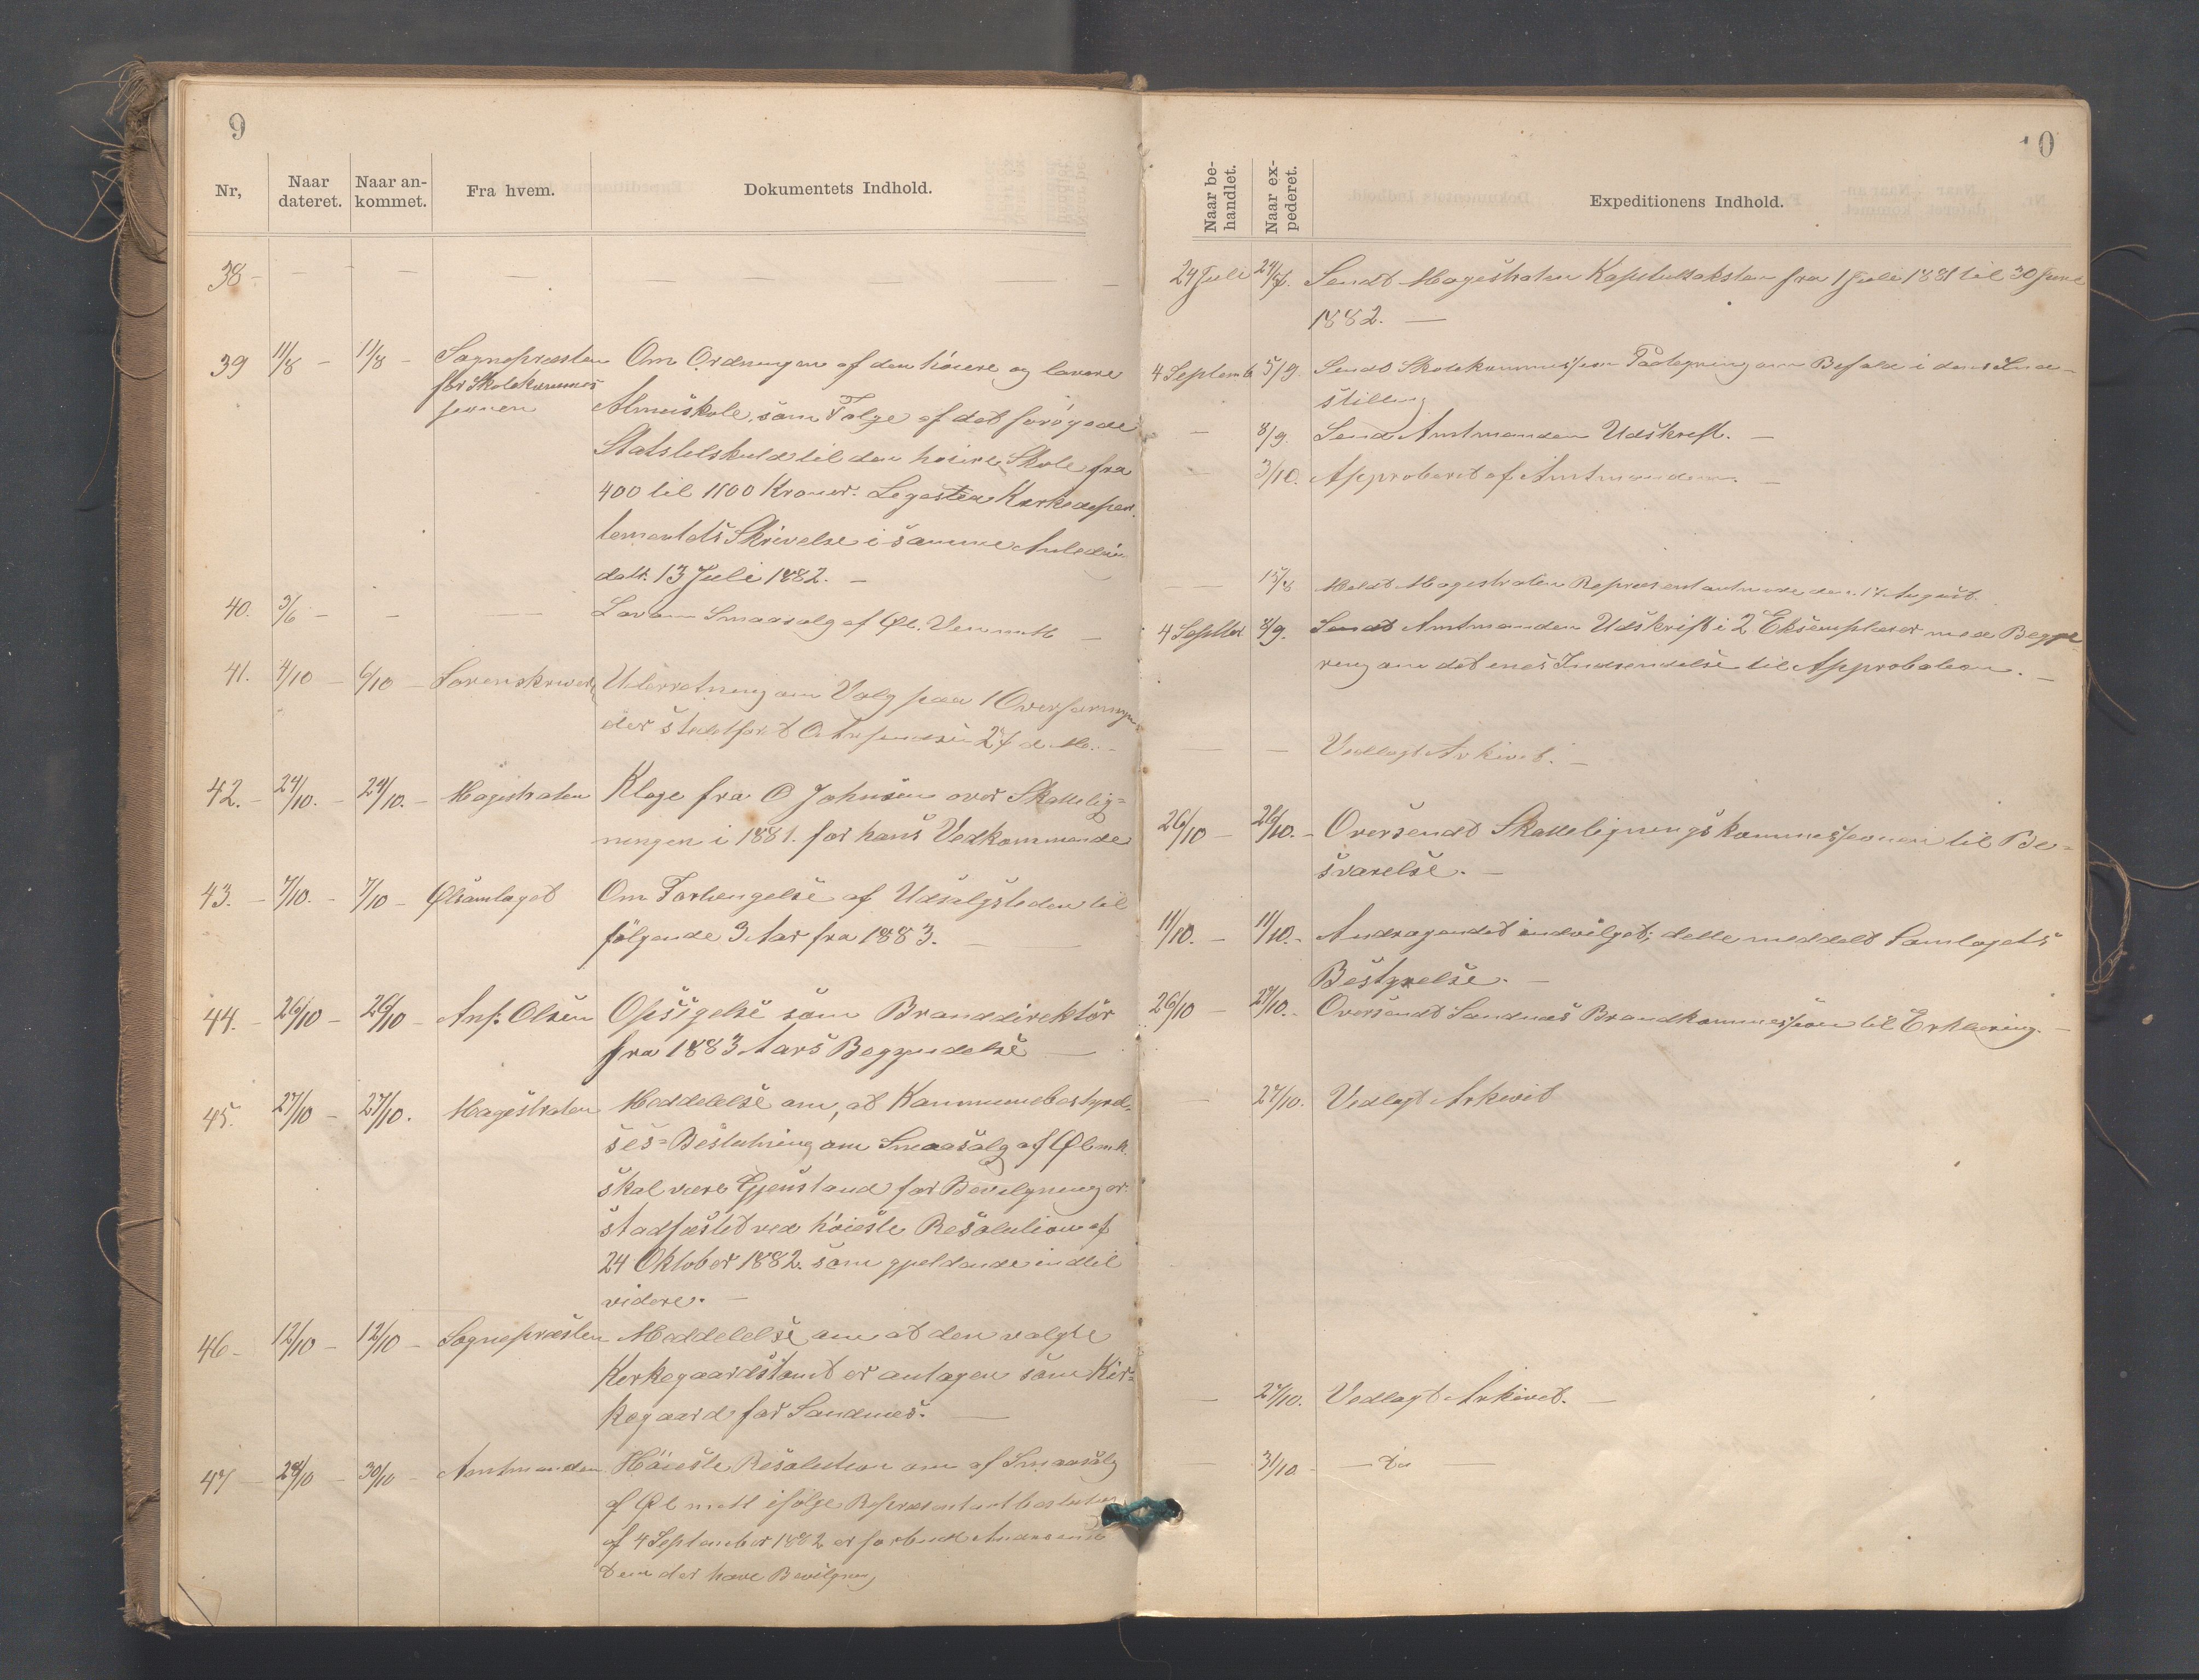 9
Nr,
Naar dateret.
Naar an-
kommet.
Fra hvem.
Dokumentets Indhold.
38 - - - - -
39 11/8 - 11/8 - Sognepræsten Om Ordningen af den høiere og lavere
for Skolekommis
sionen Almueskole, som Følge af det forøgede
Statstilskud til den høiere Skole fra
400 til 1100 Kroner. Ligesten Kirkedepar
tementets Skrivelse i samme Anledn
dat. 13 Juli 1882. -
40. 3/6 - - - Lov om Smaasalg af Øl. Vin mm -
41. 4/10 - 6/10 - Sorenskriver Uterretning om Valg paa 1 Overformyn
der istedetfor
42. - 24/10. - 24/10. - Magistraten Klage fra O Johnsen over Skattelig=
ningen i 1881. for hans Vedkommende
43. - 7/10. - 7/10 - Ølsamlaget Om Forlængelse af Udsalgsteden til
følgende 3 Aar fra 1883. -
44. - 26/10 - 26/10 - Anf. Olsen Opsigelse som Branddirektør
fra 1883 Aars Begyndelse -
45. 27/10 - 27/10. Magistraten Meddelelse om, at Kommunebestyrel=
ses=Beslutning om Smaasalg af Øl m.k.
skal være Gjenstand for Bevilgning er
stadfæstet ved høieste Resolution af
24 Oktober 1882. som gjeldende indtil
videre. -
46 - 12/10 - 12/10 - Sognepræsten Meddelelse om at den valgte
Kirkegaardstomt er antagen som Kir=
kegaard for Sandnes. -
47 - 28/10 - 30/10 - Amtmanden Høieste Resolution om af Smaasalg
af Øl m.m ifølge Repræsentantbeslutn
af 4 September 1882 er forbudt Andre end
Dem der have Bevilgning
10
Naar be-
handlet.
Naar ex-
pederet.
Expeditionens Indhold.
24 Juli 24/7. Sendt Magistraten Kapitultaksten fra 1 Juli 1881 til 30 Juni
1882. -
4 Septemb 5/9. Sendt Skolekommissionen Paategning om Bifald i dens Ind=
stilling
- 8/9. Send Amtmanden Udskrift. -
- 3/10. Approberet af Amtmanden. -
- 15/8 Meldt Magistraten Repræsentantmøde den 17 August.
4 Septbr 8/9. Sendt Amtmanden Udskrift i 2 Eksemplarer med Begjæ
ring om det enes Indsendelse til Approbation. -
- - Vedlagt Arkivet. -
26/10 - 28/10. - Oversendt Skatteligningskommissionen til Be=
svarelse. -
11/10. - 11/10. - Andragendet indvilget; dette meddelt Samlagets
Bestyrelse. -
26/10 - 27/10. - Oversendt Sandnes Brandkommission til Erklæring. -
- 27/10. Vedlagt Arkivet
- 27/10. Vedlagt Arkivet. -
- 31/10 - Do -